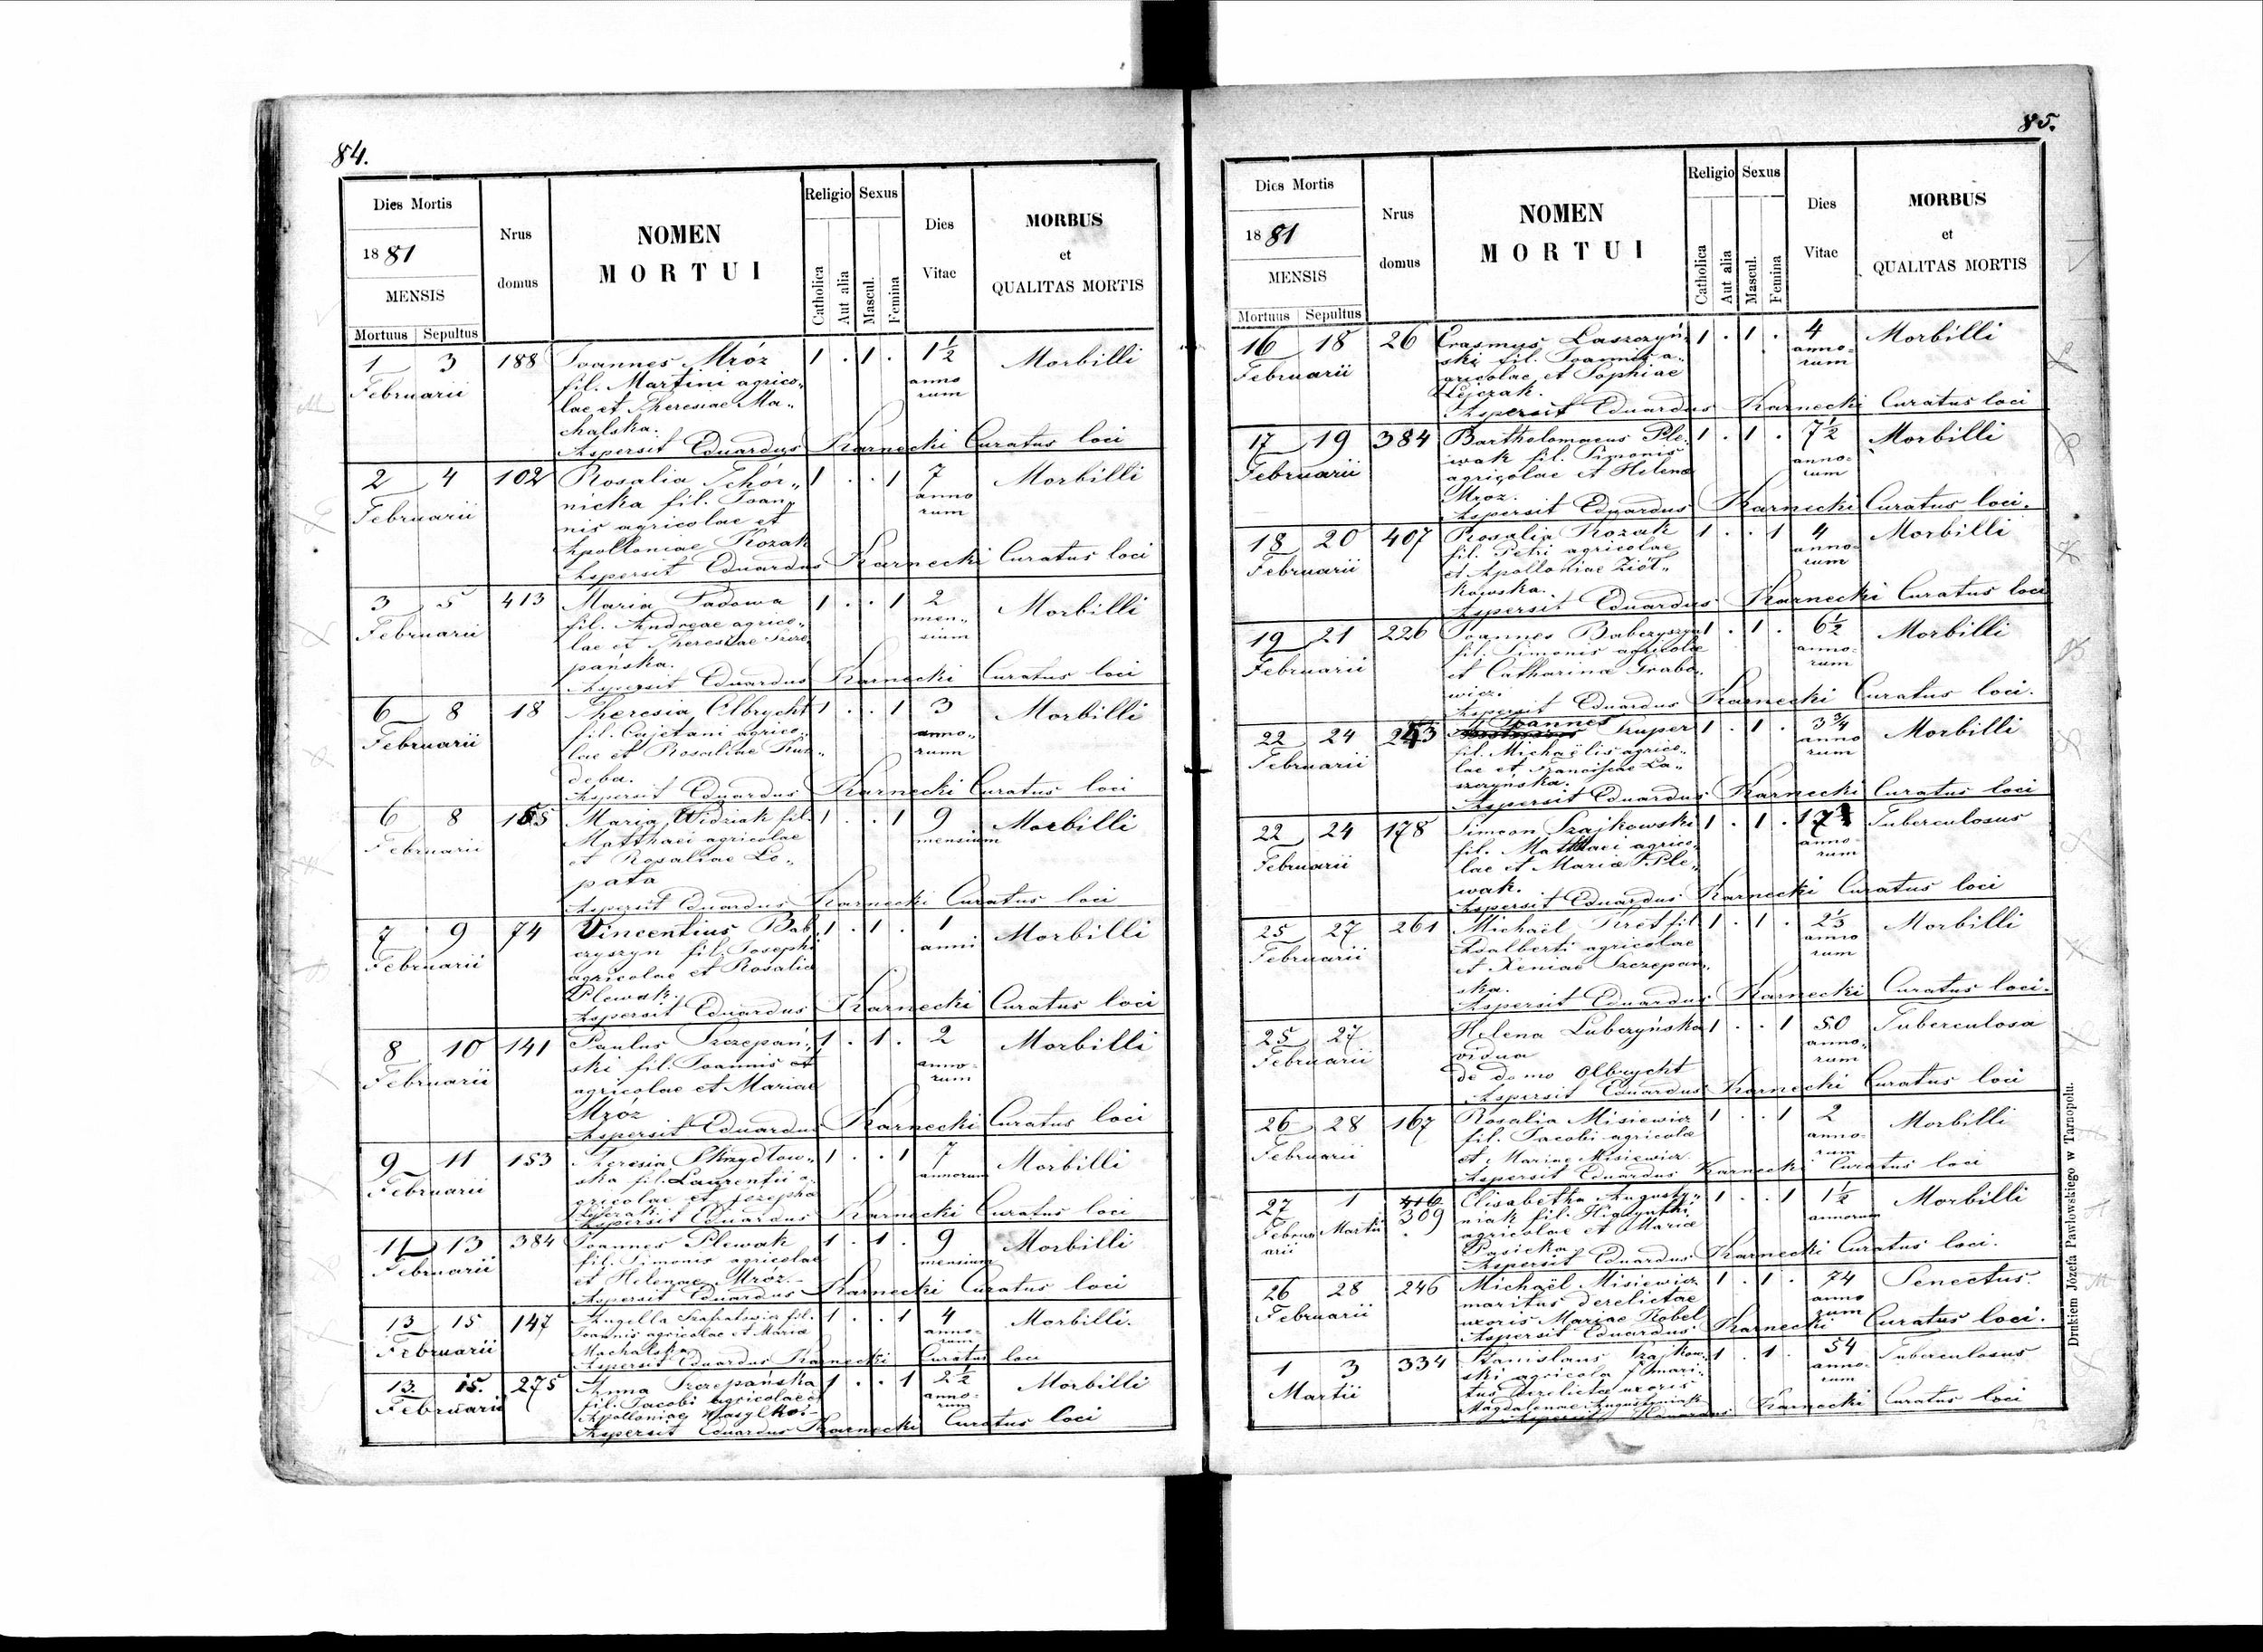 84.
Dies Mortis
1881
MENSIS
Mortuus Sepultus
Nrus
domus
NOMEN
MORTUI
Religio
Catholica
Aut alia
Sexus
Mascul.
Femina
Dies
Vitae
MORBUS
et
QUALITAS MORTIS
1 3 188 Joannes Mróz 1 . 1 . 1½ Morbilli
Februarii fil. Martini agrico„ anno
lae et Theresiae Ma„ rum
chalska.
Aspersit Eduardus Karnecki Curatus loci
2 4 102 Rosalia Tchór„ 1 . . 1 7 Morbilli
Februarii nicka fil. Joan„ anno
nis agricolae et rum
Apolloniae Kozak
Aspersit Eduardus Karnecki Curatus loci
3 5 413 Maria Sadowa 1 . . 1 2 Morbilli
Februarii fil. Andreae agrico„ men„
lae et Theresiae Szcze sium
pańska.
Aspersit Eduardus Karnecki Curatus loci
6 8 18 Theresia Olbrycht 1 . . 1 3 Morbilli
Februarii fil. Cajetani agrico„ anno„
lae et Rosaliae Kur„ rum
deba.
Aspersit Eduardus Karnecki Curatus loci
6 8 155 Maria Widziak fil. 1 . . 1 9 Morbilli
Februarii Matthaei agricolae mensium
et Rosaliae Lo„
pata
Aspersit Eduardus Karnecki Curatus loci
7 9 74 Vincentius Bab„ 1 . 1 . 1 Morbilli
Februarii czyszyn fil. Josephi anni
agricolae et Rosalia
Plewak.
Aspersit Eduardus Karnecki Curatus loci
8 10 141 Paulus Szczepań„ 1 . 1 . 2 Morbilli
Februarii ski fil. Joannis et anno-
agricolae et Mariae rum
Mróz
Aspersit Eduardus Karnecki Curatus loci
9 11 153 Theresia 1 . . 1 7 Morbilli
Februarii ska fil. Laurentii a- annorum
gricolae et Josepha
Lejczak.
Aspersit Eduardus Karnecki Curatus loci
11 13 384 Joannes Plewak 1 . 1 . 9 Morbilli
Februarii fil. Simonis agricolae mensium
et Helenae Mróz.
Aspersit Eduardus Karnecki Curatus loci
13 15 147 Angella fil. 1 . . 1 4 Morbilli.
Februarii Joannis agricolae et Mariae anno-
Machalska rum
Aspersit Eduardus Karnecki Curatus loci
13. 15. 275 Anna Szczepańska 1 . . 1 2½ Morbilli
Februarii fil. Jacobi agricolae et anno-
Apolloniae rum
Aspersit Eduardus Karnecki Curatus loci
85.
Dies Mortis
1881
MENSIS
Mortuus Sepultus
Nrus
domus
NOMEN
MORTUI
Religio
Catholica
Aut alia
Sexus
Mascul.
Femina
Dies
Vitae
MORBUS
et
QUALITAS MORTIS
16 18 26 Erasmus Laszczyń„ 1 . 1 . 4 Morbilli
Februarii ski fil. Joannis a„ anno-
gricolae et Sophiae rum
Lejczak.
Aspersit Eduardus Karnecki Curatus loci
17 19 384 Bartholomaeus Ple„ 1 . 1 . 7½ Morbilli
Februarii wak fil. Simonis anno-
agricolae et Helena rum
Mroz.
Aspersit Eduardus Karnecki Curatus loci.
18 20 407 Rosalia Kozak 1 . . 1 4 Morbilli
Februarii fil. Petri agricolae anno-
et Apolloniae Ziół„ rum
kowska.
Aspersit Eduardus Karnecki Curatus loci
19 21 226 Joannes Babczyszyn 1 . 1 . 6½ Morbilli
Februarii fil. Simonis agricolae anno-
et Catharina Grabo„ rum
wicz.
Aspersit Eduardus Karnecki Curatus loci.
22 24 243 Joannes Kruper 1 . 1 . 3¾ Morbilli
Februarii fil. Michaëlis agrico„ anno
lae et Franciscae La„ rum
szczyńska.
Aspersit Eduardus Karnecki Curatus loci
22 24 178 Simeon Szajkowski 1 . 1 . Tuberculosus
Februarii fil. Matthaei agrico„ anno-
lae et Maria Ple„ rum
wak.
Aspersit Eduardus Karnecki Curatus loci
25 27 261 Michaël Kret fil. 1 . 1 . 2⅓ Morbilli
Februarii Adalberti agricolae anno
et Xeniae Szczepan„ rum
ska.
Aspersit Eduardus Karnecki Curatus loci.
25 27 Helena Lubczyńska 1 . . 1 50 Tuberculosa
Februarii vidua anno„
de domo Olbrycht rum
Aspersit Eduardus Karnecki Curatus loci
26 28 167 Rosalia Misiewicz 1 . . 1 2 Morbilli
Februarii fil. Jacobi agricolae anno-
et Mariae Misiewicz rum
Aspersit Eduardus Karnecki Curatus loci
27 1 309 Elisabetha Augusty„ 1 . . 1 1½ Morbilli
Februarii Martii niak fil. Hiacynthi annorum
agricolae et Maria
Pasicka
Aspersit Eduardus Karnecki Curatus loci.
26 28 246 Michaël Misiewicz 1 . 1 . 74 Senectus.
Februarii maritus derelictae anno
uxoris Mariae Kobel rum
Aspersit Eduardus Karnecki Curatus loci.
1 3 334 Stanislaus Szajkow„ 1 . 1 . 54 Tuberculosus
Martii ski agricola mari- anno-
tus derelictae uxoris rum
Magdalenae Augustyniak
Aspersit Eduardus Karnecki Curatus loci
Drukiem Józefa Pawłowskiego w Tarnopolu.